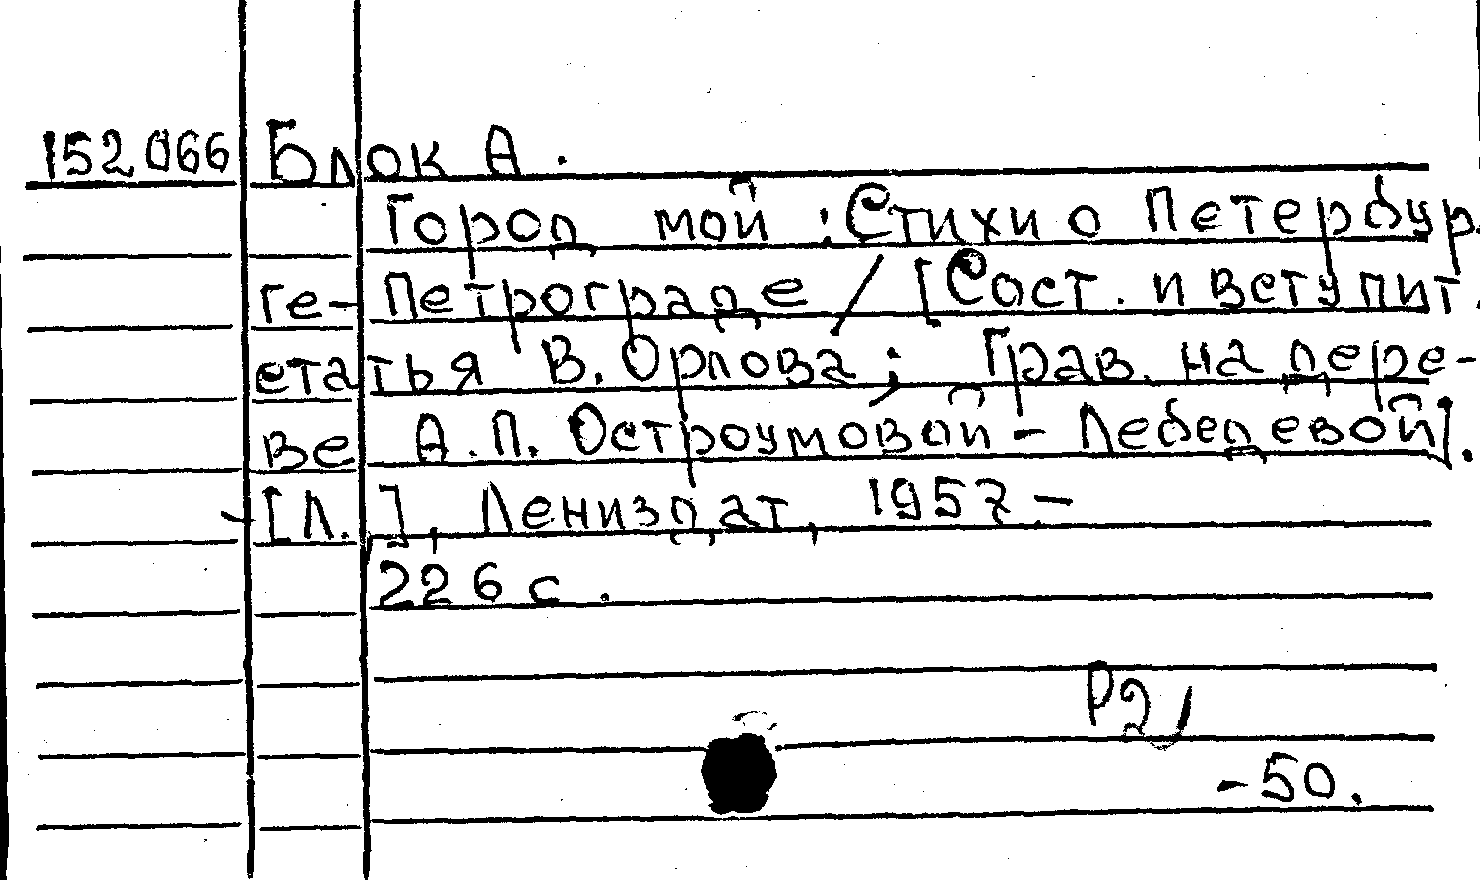 152066 Блок А.
Город мой : Стихи о Петербур.
ге - Петрограде / [Сост. и вступит.
статья В. Орлова; Грав. на дере-
ве А.П. Остроумовой - Лебедевой].
- [Л.], Лениздат, 1957. -
226 с.
Р2
-50.